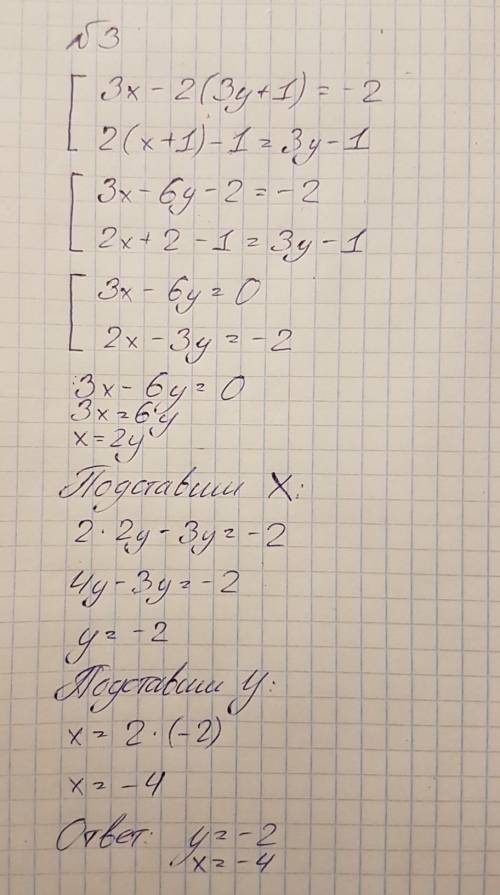 №3
3x - 2(3y+1) = -2
2(x+1)-1 = 3y-1
3x - 6y - 2 = -2
2x + 2 - 1 = 3y - 1
3x - 6y = 0
2x - 3y = -2
3x - 6y = 0
3x = 6y
x = 2y
Подставим X:
2·2y - 3y = -2
4y - 3y = -2
y = -2
Подставим y:
x = 2·(-2)
x = -4
Ответ: y = -2
x = -4